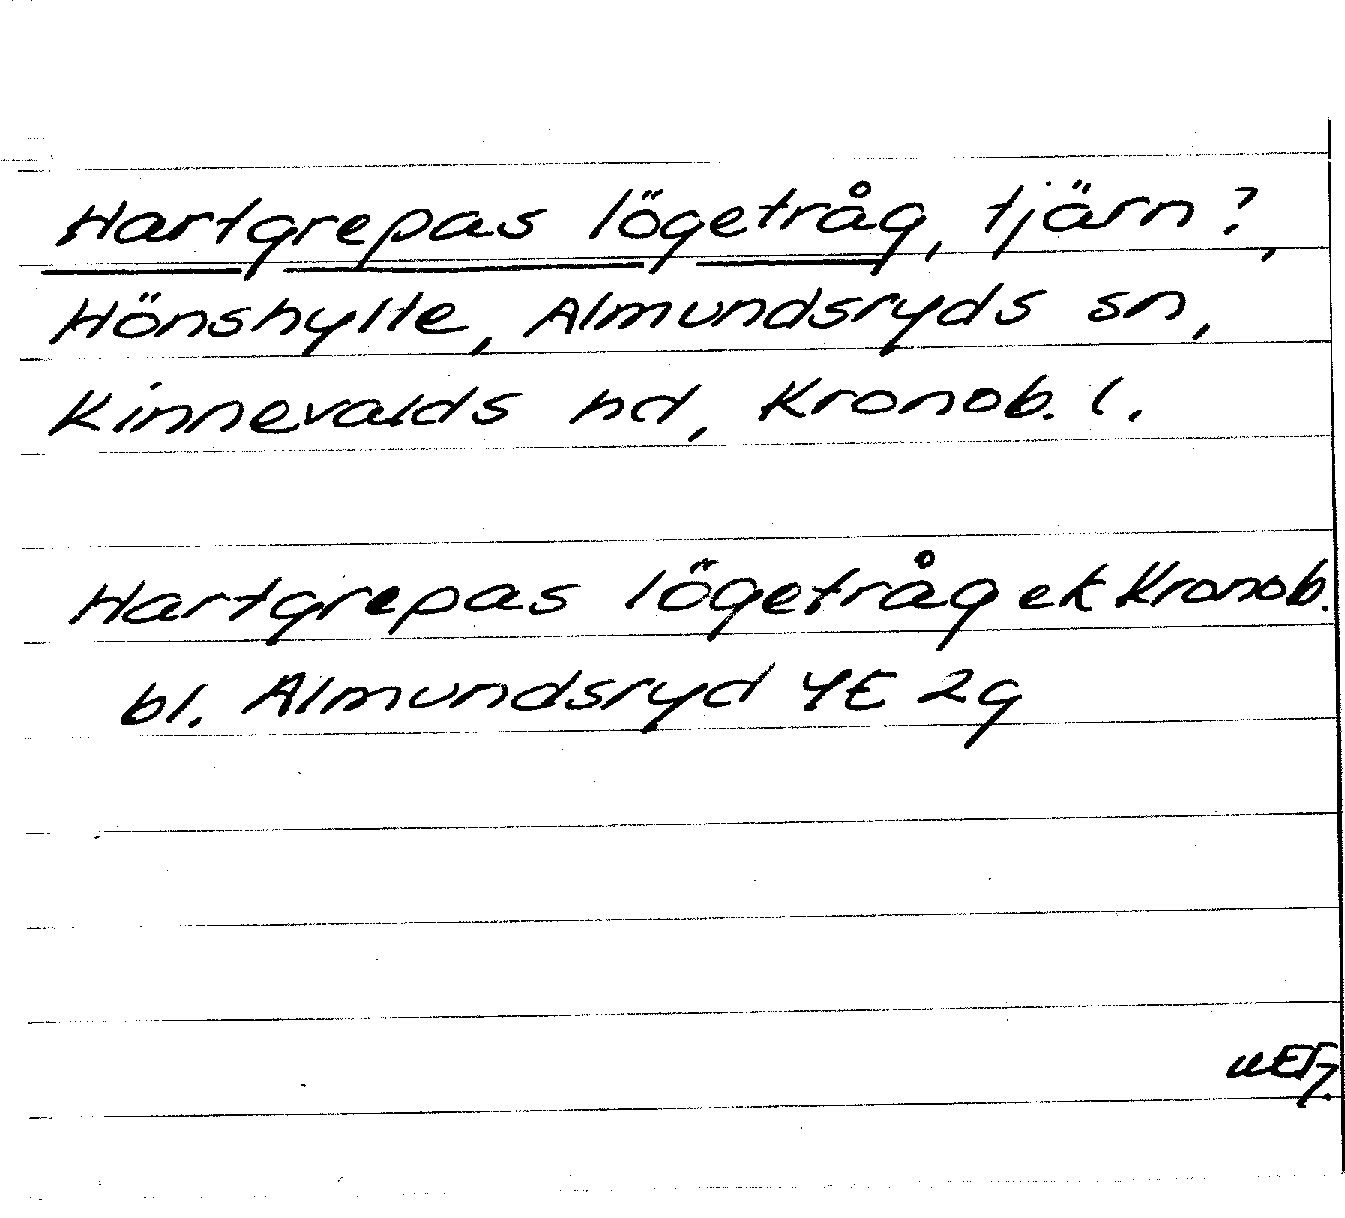 Hartgrepas lögetråg, tjärn?,
Hönshylte, Almundsryds sn,
Kinnevalds hd, Kronob. l.
Hartgrepas lögetråg ek Kronob.
bl. Almundsryd 4E 2g